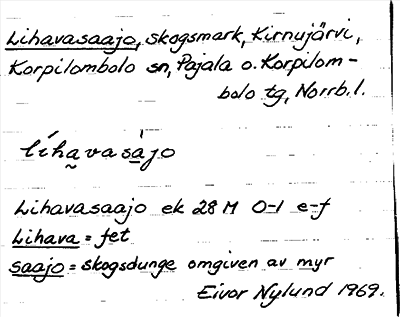 Lihavasaajo, skogsmark, Kirnujärvi,
Korpilombolo sn, Pajala o. Korpilom-
bolo tg, Norrb. l.
líha̬vasà̱jo
Lihavasaajo ek 28 M 0-1 e-f
Lihava = fet
saajo = skogsdunge omgiven av myr
Eivor Nylund 1969.